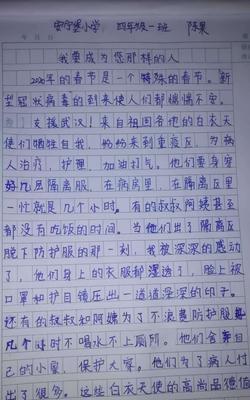 安宁堡小学 四年级一班 陈果
我要成为您那样的人
2020年的春节是一个特殊的春节。新
型冠状病毒的到来使人们都惴惴不安。
支援武汉!来自祖国各地的白衣天
使们牺牲自我,纷纷来到重疫区,为病
人治疗,护理,加油打气。他们要身穿
好几层隔离服,在病房里,在隔离区里
一忙就是几个小时。有的叔叔阿姨甚至
都没有吃饭的时间。当他们出了隔离区
脱下防护服的那一刻,我被深深的感动
了,他们身上的衣服都湿透了,脸上被
口罩和护目镜压出一道道深深的印子。
还有的叔叔和阿姨为了不浪费防护服
几个小时不喝水不上厕所。他们舍自
己的小家,保护大家。他们为了病人付
出了很多。这些白衣天使的高尚品德值